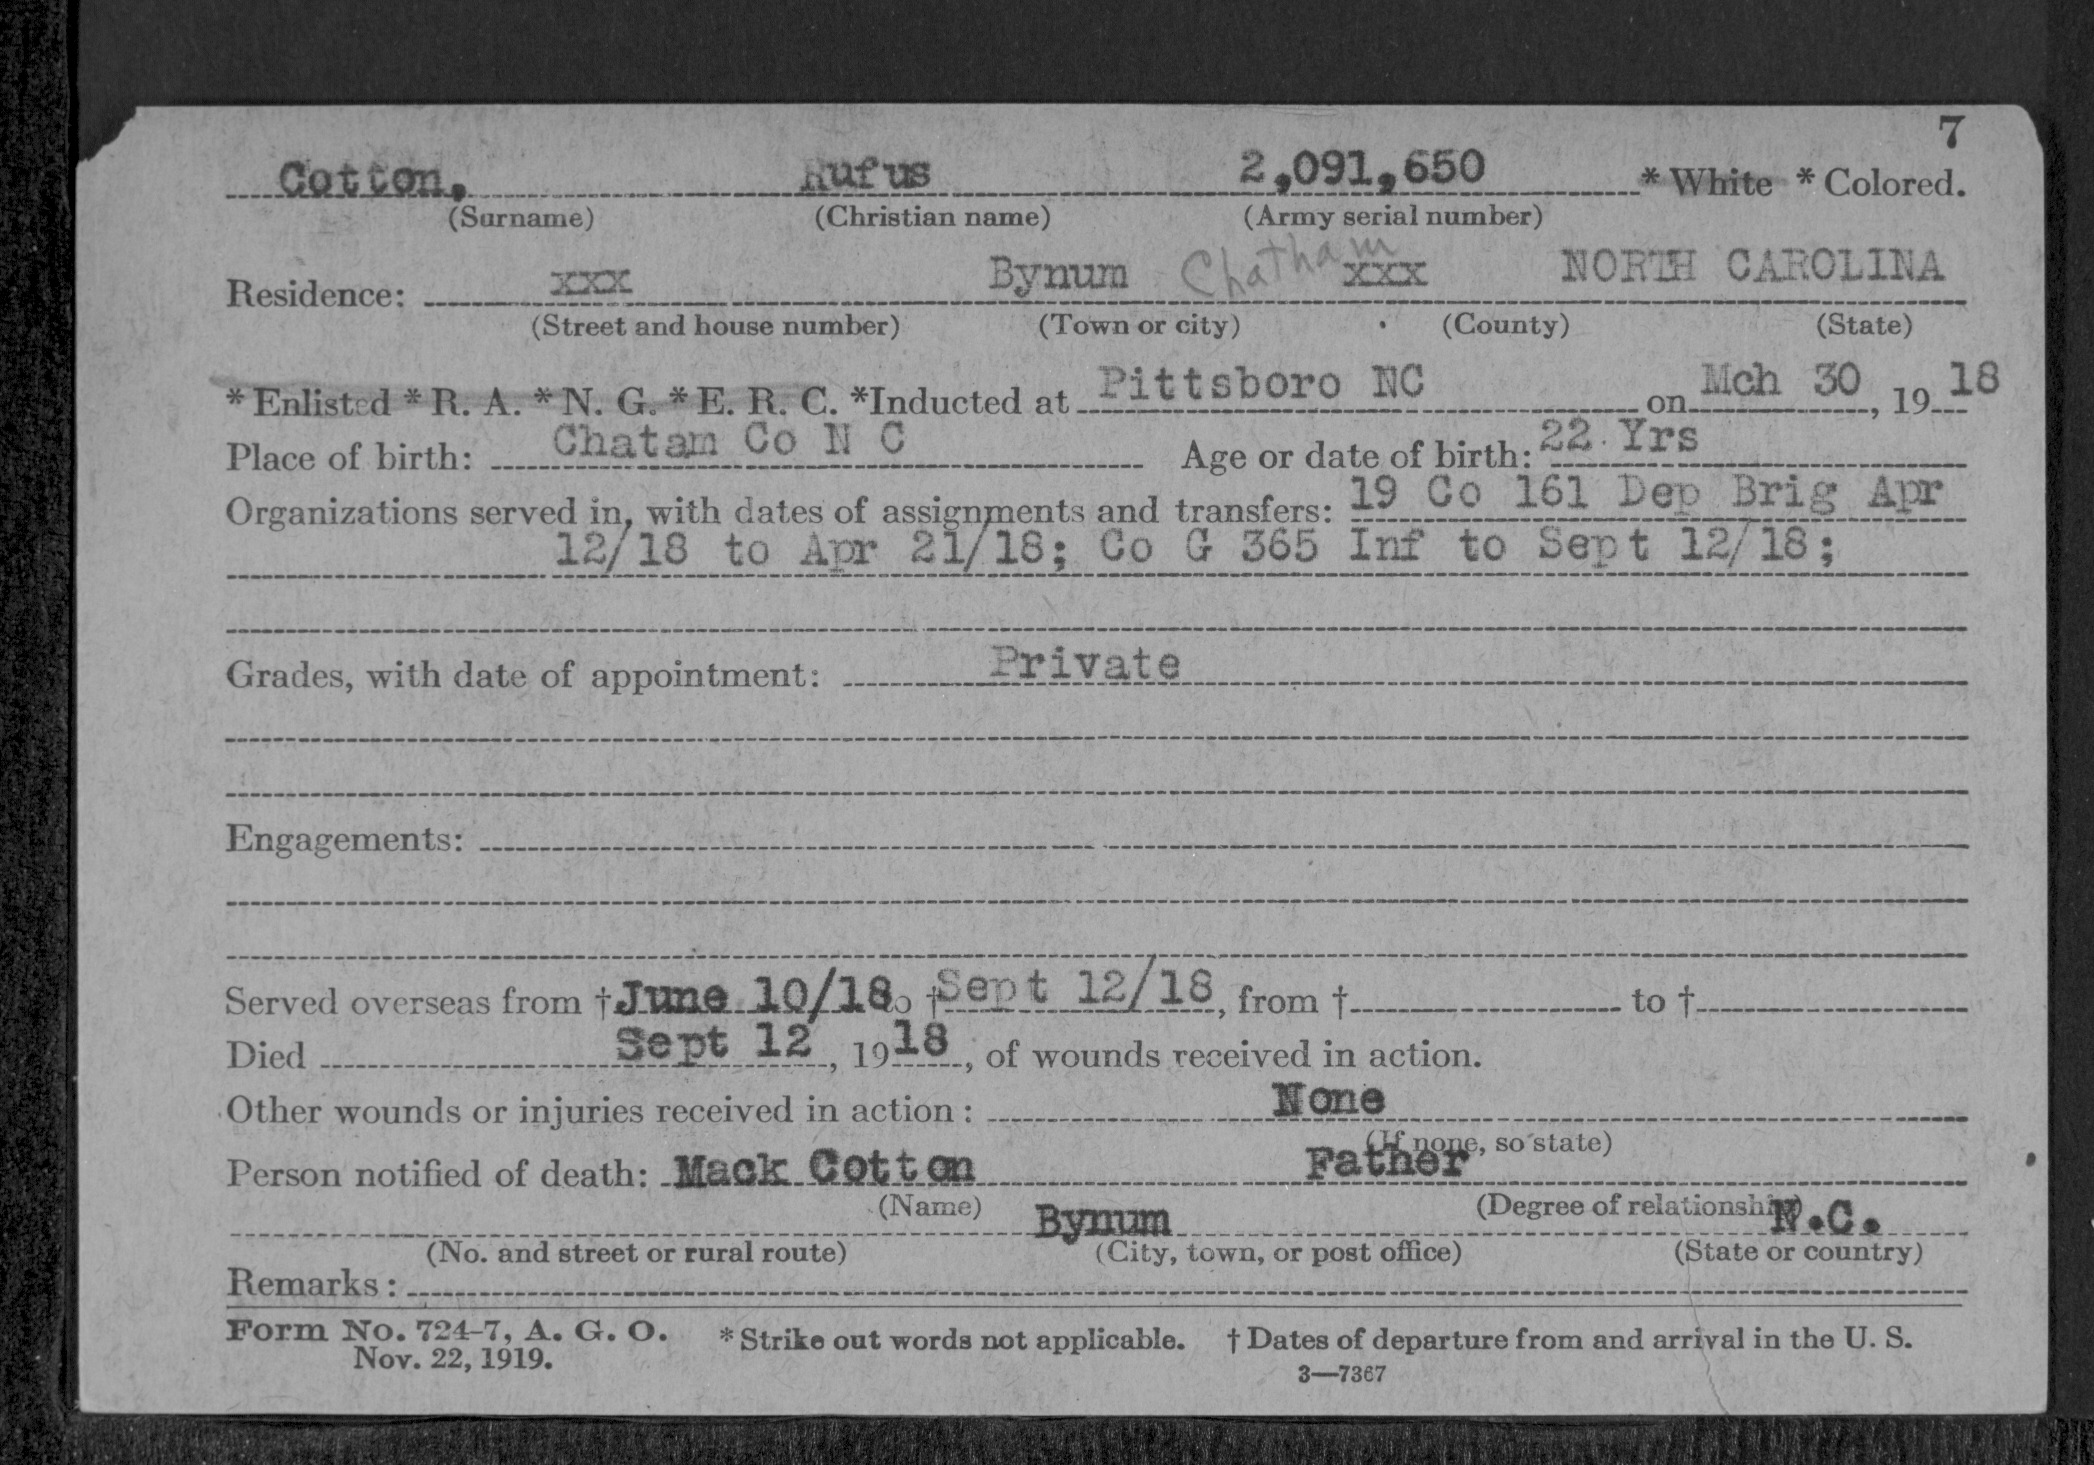 7
Cotton, Rufus 2,091,650 * White * Colored.
(Surname) (Christian name) (Army serial number)
Residence: xxx Bynum Chatham xxx NORTH CAROLINA
(Street and house number) (Town or city) (County) (State)
* Enlisted * R. A. * N. G. * E. R. C. *Inducted at Pittsboro NC on Mch 30, 1918
Place of birth: Chatam Co N C Age or date of birth: 22 Yrs
Organizations served in, with dates of assignments and transfers: 19 Co 161 Dep Brig Apr
12/18 to Apr 21/18; Co G 365 Inf to Sept 12/18;
Grades, with date of appointment: Private
Engagements:
Served overseas from † June 10/18 to † Sept 12/18, from † to †
Died Sept 12, 1918, of wounds received in action.
Other wounds or injuries received in action: None
(If none, so state)
Person notified of death: Mack Cotton Father
(Name) (Degree of relationship)
Bynum N.C.
(No. and street or rural route) (City, town, or post office) (State or country)
Remarks:
Form No. 724-7, A. G. O. * Strike out words not applicable. † Dates of departure from and arrival in the U. S.
Nov. 22, 1919. 3—7367